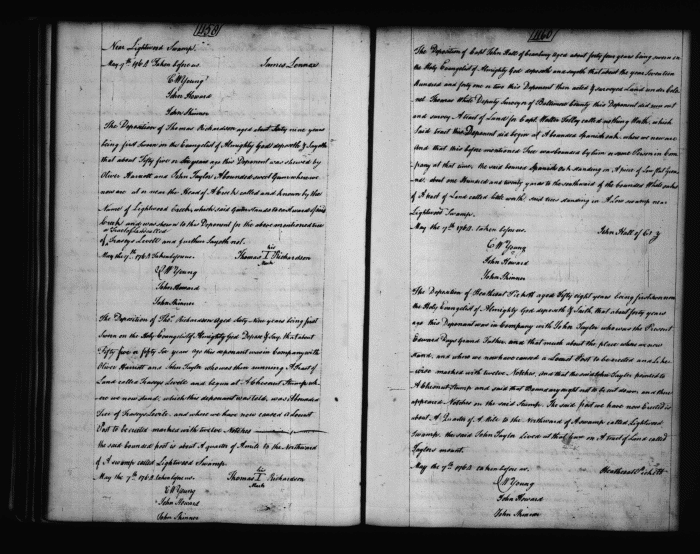 459
Near Lightwood Swamp.
May 7th 1762 Taken before us James Lennox
E W Young
John Howard
John Skinner
The Deposition of Thomas Richardson aged about Sixty nine years
being first sworn on the Evangelist of Almighty God deposeth & Sayeth
that about fifty five or Six years ago this Deponent was shewed by
Oliver Harriott and John Taylor A bounded sweet Gum where we
now are at or near the Head of A Creek called and known by the
Name of Lightwood Creek, which said Gum stands to
Creek and was shown to this Deponent for the above mentioned tree
or Tract of Land called
of Traseys Levell and further Sayeth not.
May the 7th 1762 Taken before us his
Thomas I Richardson
Mark
E W Young
John Howard
John Skinner
The Deposition of Thos. Richardson aged Sixty Nine years being first
Sworn on the Holy Evangelist of Almighty God Depose & Say, that about
Fifty five or fifty Six year ago this deponent was in Company with
Oliver Harriott and John Taylor who was then running A Tract of
Land called Traseys Levele and began at A Chesnut Stump wh-
ere we now stand, which this deponent was told, was A bounded
Tree of Traseys Levele, and where we have now caused a Locust
Post to be erected marked with twelve Notches
the said bounded post is about A quarter of A mile to the Northward
of A swamp called Lightwood Swamp.
May the 7th 1762 taken before us, his
Thomas I Richardson
Mark
E W Young
John Howard
John Skinner
460
The Deposition of Capt John Hall of Cranbury aged about forty four years being sworn on
the Holy Evangelist of Almighty God deposeth and sayeth that about the year Seventeen
Hundred and forty one or two this Deponent then acted as surveyor Land under Colo-
nel Thomas White Deputy Surveyor of Baltimore County this Deponent did run out
and survey A tract of Land for Capt Walter Tolley called nothing Worth, which
Said tract this Deponent did begin at A bounded Spanish oak, where we now are
and that this before mentioned Tree was bounded by him or some Person in Com-
pany at that time, the said bounded Spanish Oak standing on A piece of low flat Grou-
nd, about one Hundred and twenty yards to the southward of the bounded White oaks
of A tract of Land called little worth, said trees standing in A low swamp near
Lightwood Swamp.
May the 7th 1762. taken before us. John Hall of
E W Young
John Howard
John Skinner
The Deposition of Heathcoat Pickett aged Fifty eight years being first sworn on
the Holy Evangelist of Almighty God deposeth & Saith that about forty years
ago this Deponant was in Company with John Taylor who was the Present
Edward Days Grand Father and that much about the place where we now
Stand, and where we now have caused a Locust Post to be erected and Like-
wise marked with twelve Notches, and that the said John Taylor pointed to
A Chesnut Stump and said that and there
appeared Notches on the said Stump. The said post we have now Erected is
about A Quarter of A Mile to the Northward of A swamp called Lightwood
Swamp. the said John Taylor Lived at that time on A tract of Land called
Taylors mount.
May the 7th 1762 taken before us. Heathcoat Pickett
E W Young
John Howard
John Skinner